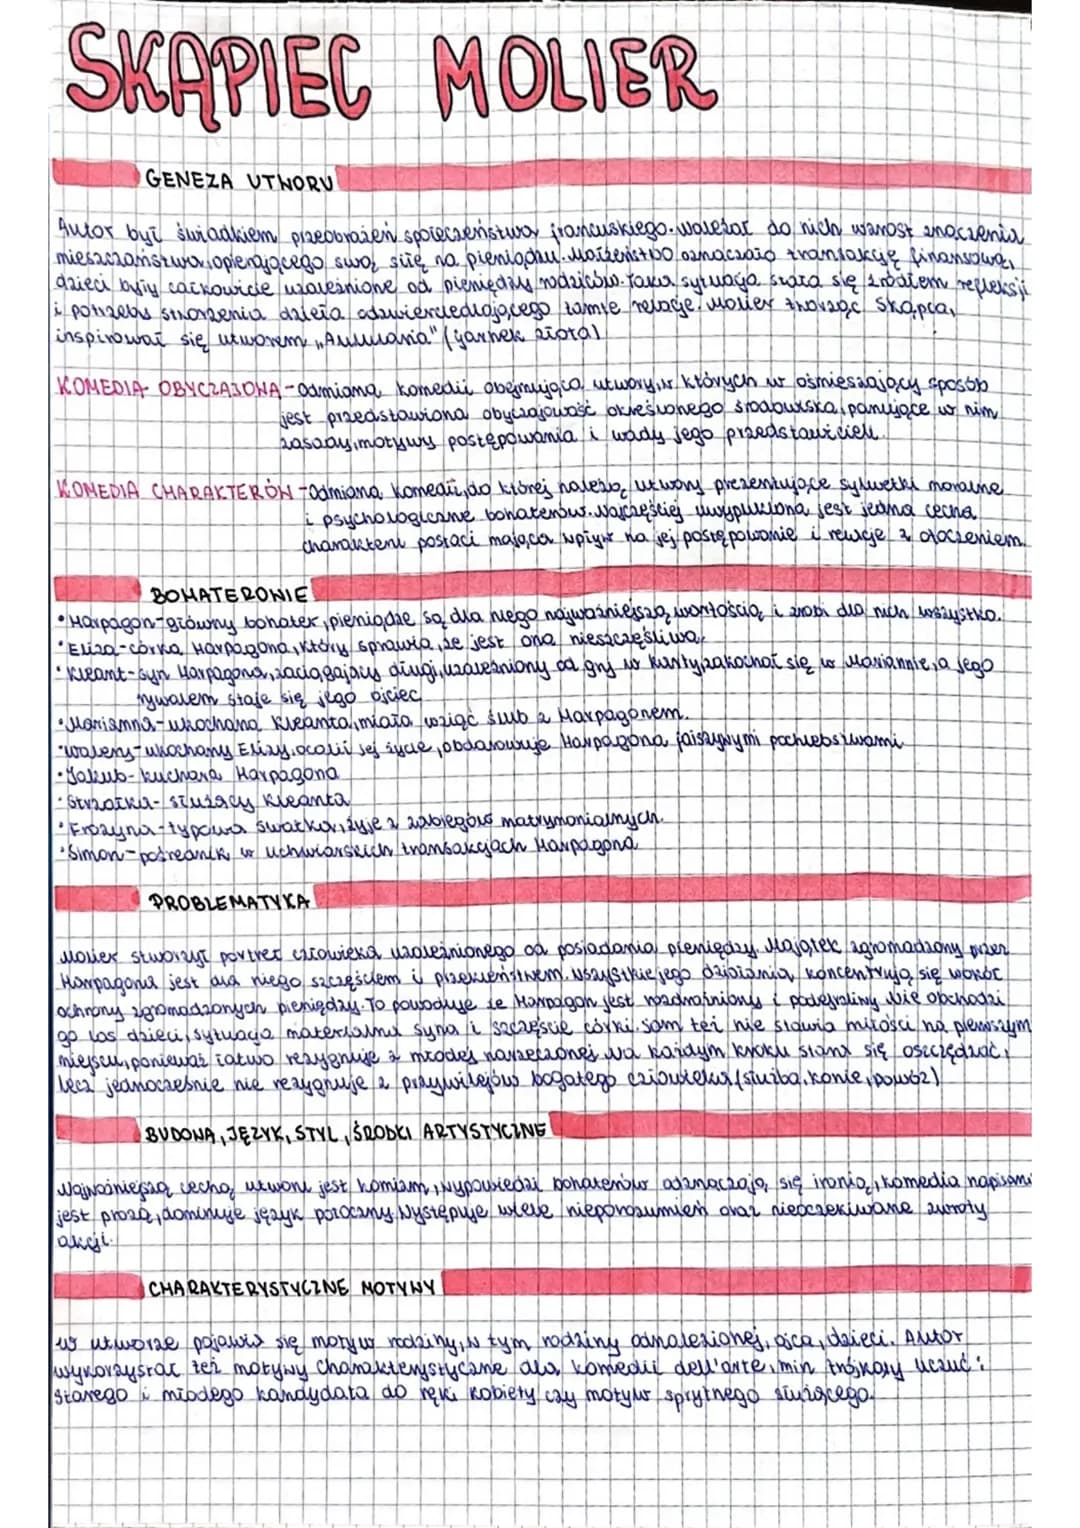 SKĄPIEC MOLIER
GENEZA UTWORU
Autor był świadkiem przeobrażeń społeczeństwa francuskiego. Należał do nich wzrost znaczenia
mieszczaństwa, opierającego swą siłę na pieniądzu. Małżeństwo oznaczało transakcję finansową,
dzieci były całkowicie uzależnione od pieniędzy rodziców. Taka sytuacja stała się źródłem refleksji
i potrzeby stworzenia dzieła odzwierciedlającego tamte relacje. Molier tworząc Skąpca,
inspirował się utworem „Aulularia" (garnek złota)
KOMEDIA OBYCZAJOWA - odmiana komedii obejmująca utwory, w których w ośmieszający sposób
jest przedstawiona obyczajowość określonego środowiska, panujące w nim
zasady, motywy postępowania i wady jego przedstawicieli.
KOMEDIA CHARAKTERÓW - odmiana komedii, do której należą utwory prezentujące sylwetki moralne
i psychologiczne bohaterów. Najczęściej uwypuklona jest jedna cecha
charakteru postaci mająca wpływ na jej postępowanie i relacje z otoczeniem.
BOHATEROWIE
• Harpagon - główny bohater, pieniądze są dla niego najważniejszą wartością i zrobi dla nich wszystko.
• Eliza - córka Harpagona, który sprawia, że jest ona nieszczęśliwa.
• Kleant - syn Harpagona, zaciągający długi, uzależniony od gry w karty, zakochał się w Mariannie, a jego
rywalem staje się jego ojciec
• Marianna - ukochana Kleanta, miała wziąć ślub z Harpagonem.
• Walery - ukochany Elizy, ocalił jej życie, obdarowuje Harpagona fałszywymi pochlebstwami
• Jakub - kucharz Harpagona
• Strzałka - służący Kleanta
• Frozyna - typowa swatka, żyje z zabiegów matrymonialnych.
• Simon - pośrednik w lichwiarskich transakcjach Harpagona
PROBLEMATYKA
Molier stworzył portret człowieka uzależnionego od posiadania pieniędzy. Majątek zgromadzony przez
Harpagona jest dla niego szczęściem i przekleństwem. Wszystkie jego działania koncentrują się wokół
ochrony zgromadzonych pieniędzy. To powoduje że Harpagon jest rozdrażniony i podejrzliwy. Nie obchodzi
go los dzieci, sytuacja materialna syna i szczęście córki. Sam też nie stawia miłości na pierwszym
miejscu, ponieważ łatwo rezygnuje z młodej narzeczonej. Na każdym kroku stara się oszczędzać,
lecz jednocześnie nie rezygnuje z przywilejów bogatego człowieka (służba, konie, powóz)
BUDOWA, JĘZYK, STYL, ŚRODKI ARTYSTYCZNE
Najważniejszą cechą utworu jest komizm, wypowiedzi bohaterów odznaczają się ironią, komedia napisana
jest prozą, dominuje język potoczny. Występuje wiele nieporozumień oraz nieoczekiwane zwroty
akcji.
CHARAKTERYSTYCZNE MOTYWY
W utworze pojawia się motyw rodziny, w tym rodziny odnalezionej, ojca, dzieci. Autor
wykorzystał też motywy charakterystyczne dla komedii dell'arte, min trójkąty uczuć:
starego i młodego kandydata do ręki kobiety czy motyw sprytnego służącego.